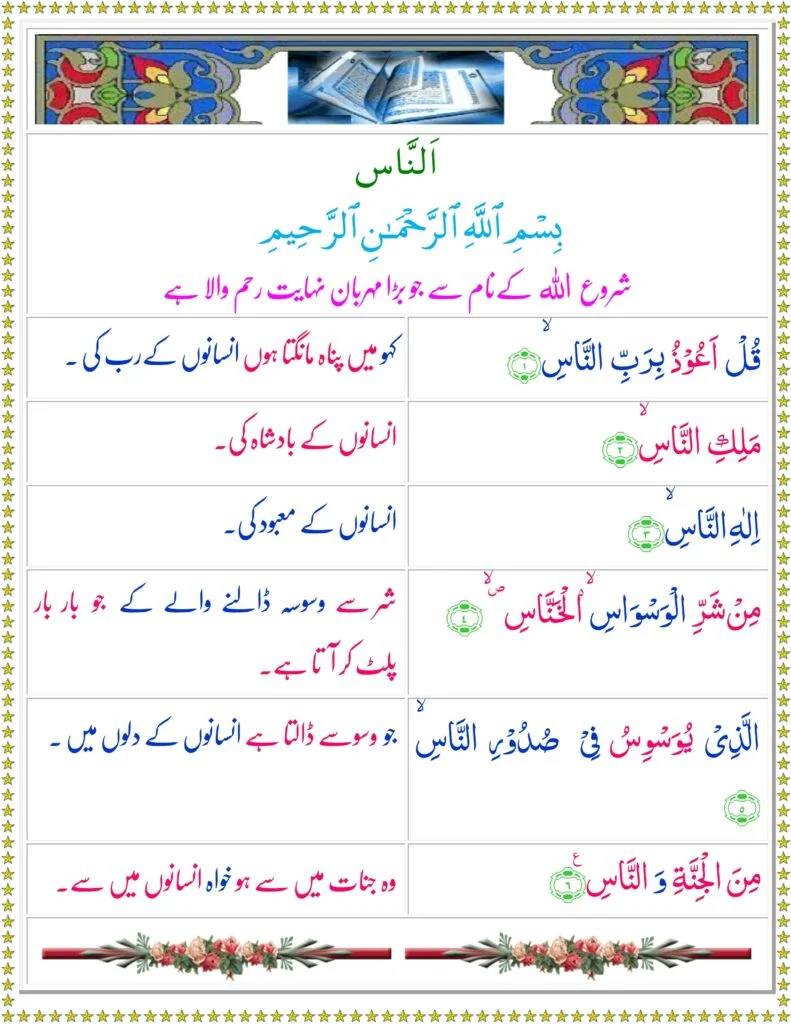 اَلنَّاس
بِسْمِ ٱللَّهِ ٱلرَّحْمَـٰنِ ٱلرَّحِيمِ
شروع اللہ کے نام سے جو بڑا مہربان نہایت رحم والا ہے
قُلْ اَعُوْذُ بِرَبِّ النَّاسِۙ ۝١
کہو میں پناہ مانگتا ہوں انسانوں کے رب کی ۔
مَلِكِ النَّاسِۙ ۝٢
انسانوں کے بادشاہ کی۔
اِلٰهِ النَّاسِۙ ۝٣
انسانوں کے معبود کی۔
مِنْ شَرِّ الْوَسْوَاسِ ۙ۬ الْخَنَّاسِ ۪ۙ ۝٤
شر سے وسوسہ ڈالنے والے کے جو بار بار
پلٹ کر آتا ہے۔
الَّذِيْ يُوَسْوِسُ فِيْ صُدُوْرِ النَّاسِۙ
۝٥
جو وسوسے ڈالتا ہے انسانوں کے دلوں میں ۔
مِنَ الْجِنَّةِ وَ النَّاسِ ۧ ۝٦
وہ جنات میں سے ہو خواہ انسانوں میں سے۔